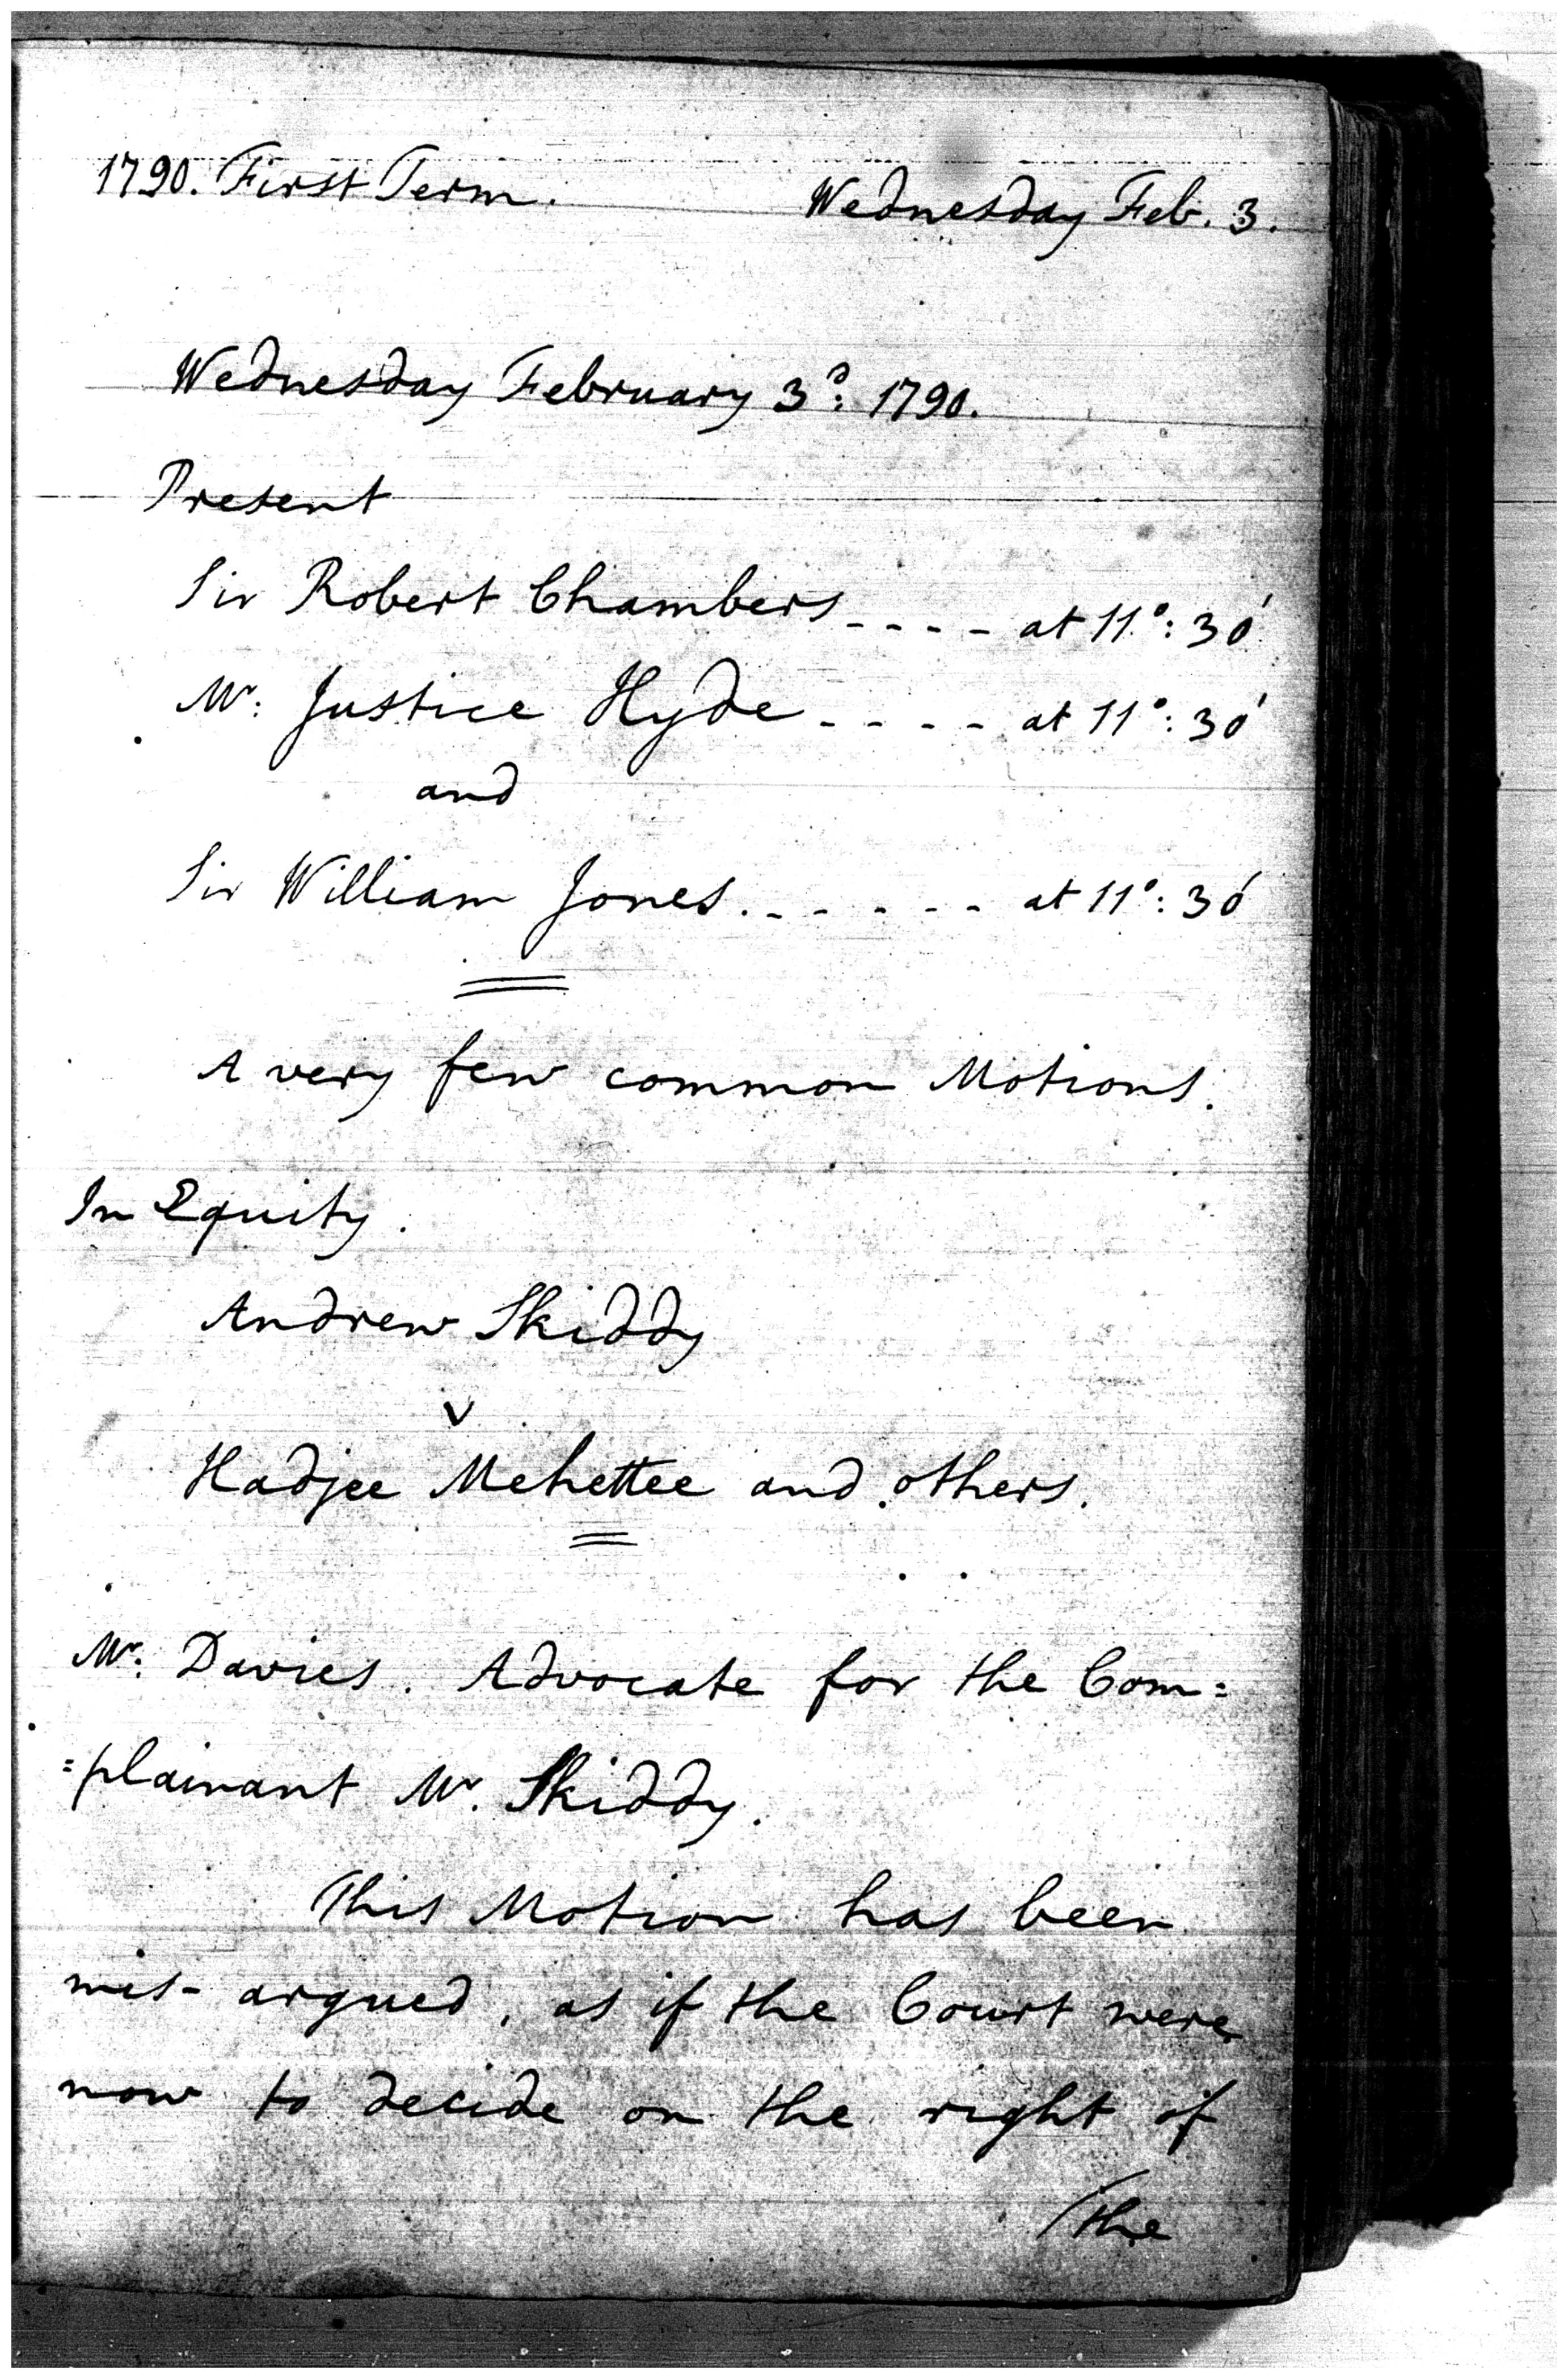 1790. First Term.
Wednesday Feb. 3.
Wednesday February 3ᵈ: 1790.
Present
Sir Robert Chambers - - - - at 11°: 30'
Mr: Justice Hyde - - - - at 11°: 30'
and
Sir William Jones. - - - - - - at 11°: 30'
A very few common Motions.
In Equity.
Andrew Skiddy
v
Hadjee Mehettee and others.
Mr: Davies. Advocate for the Com=
=plainant Mr. Skiddy.
This Motion has been
mis-argued, as if the Court were
now to decide on the right of
the